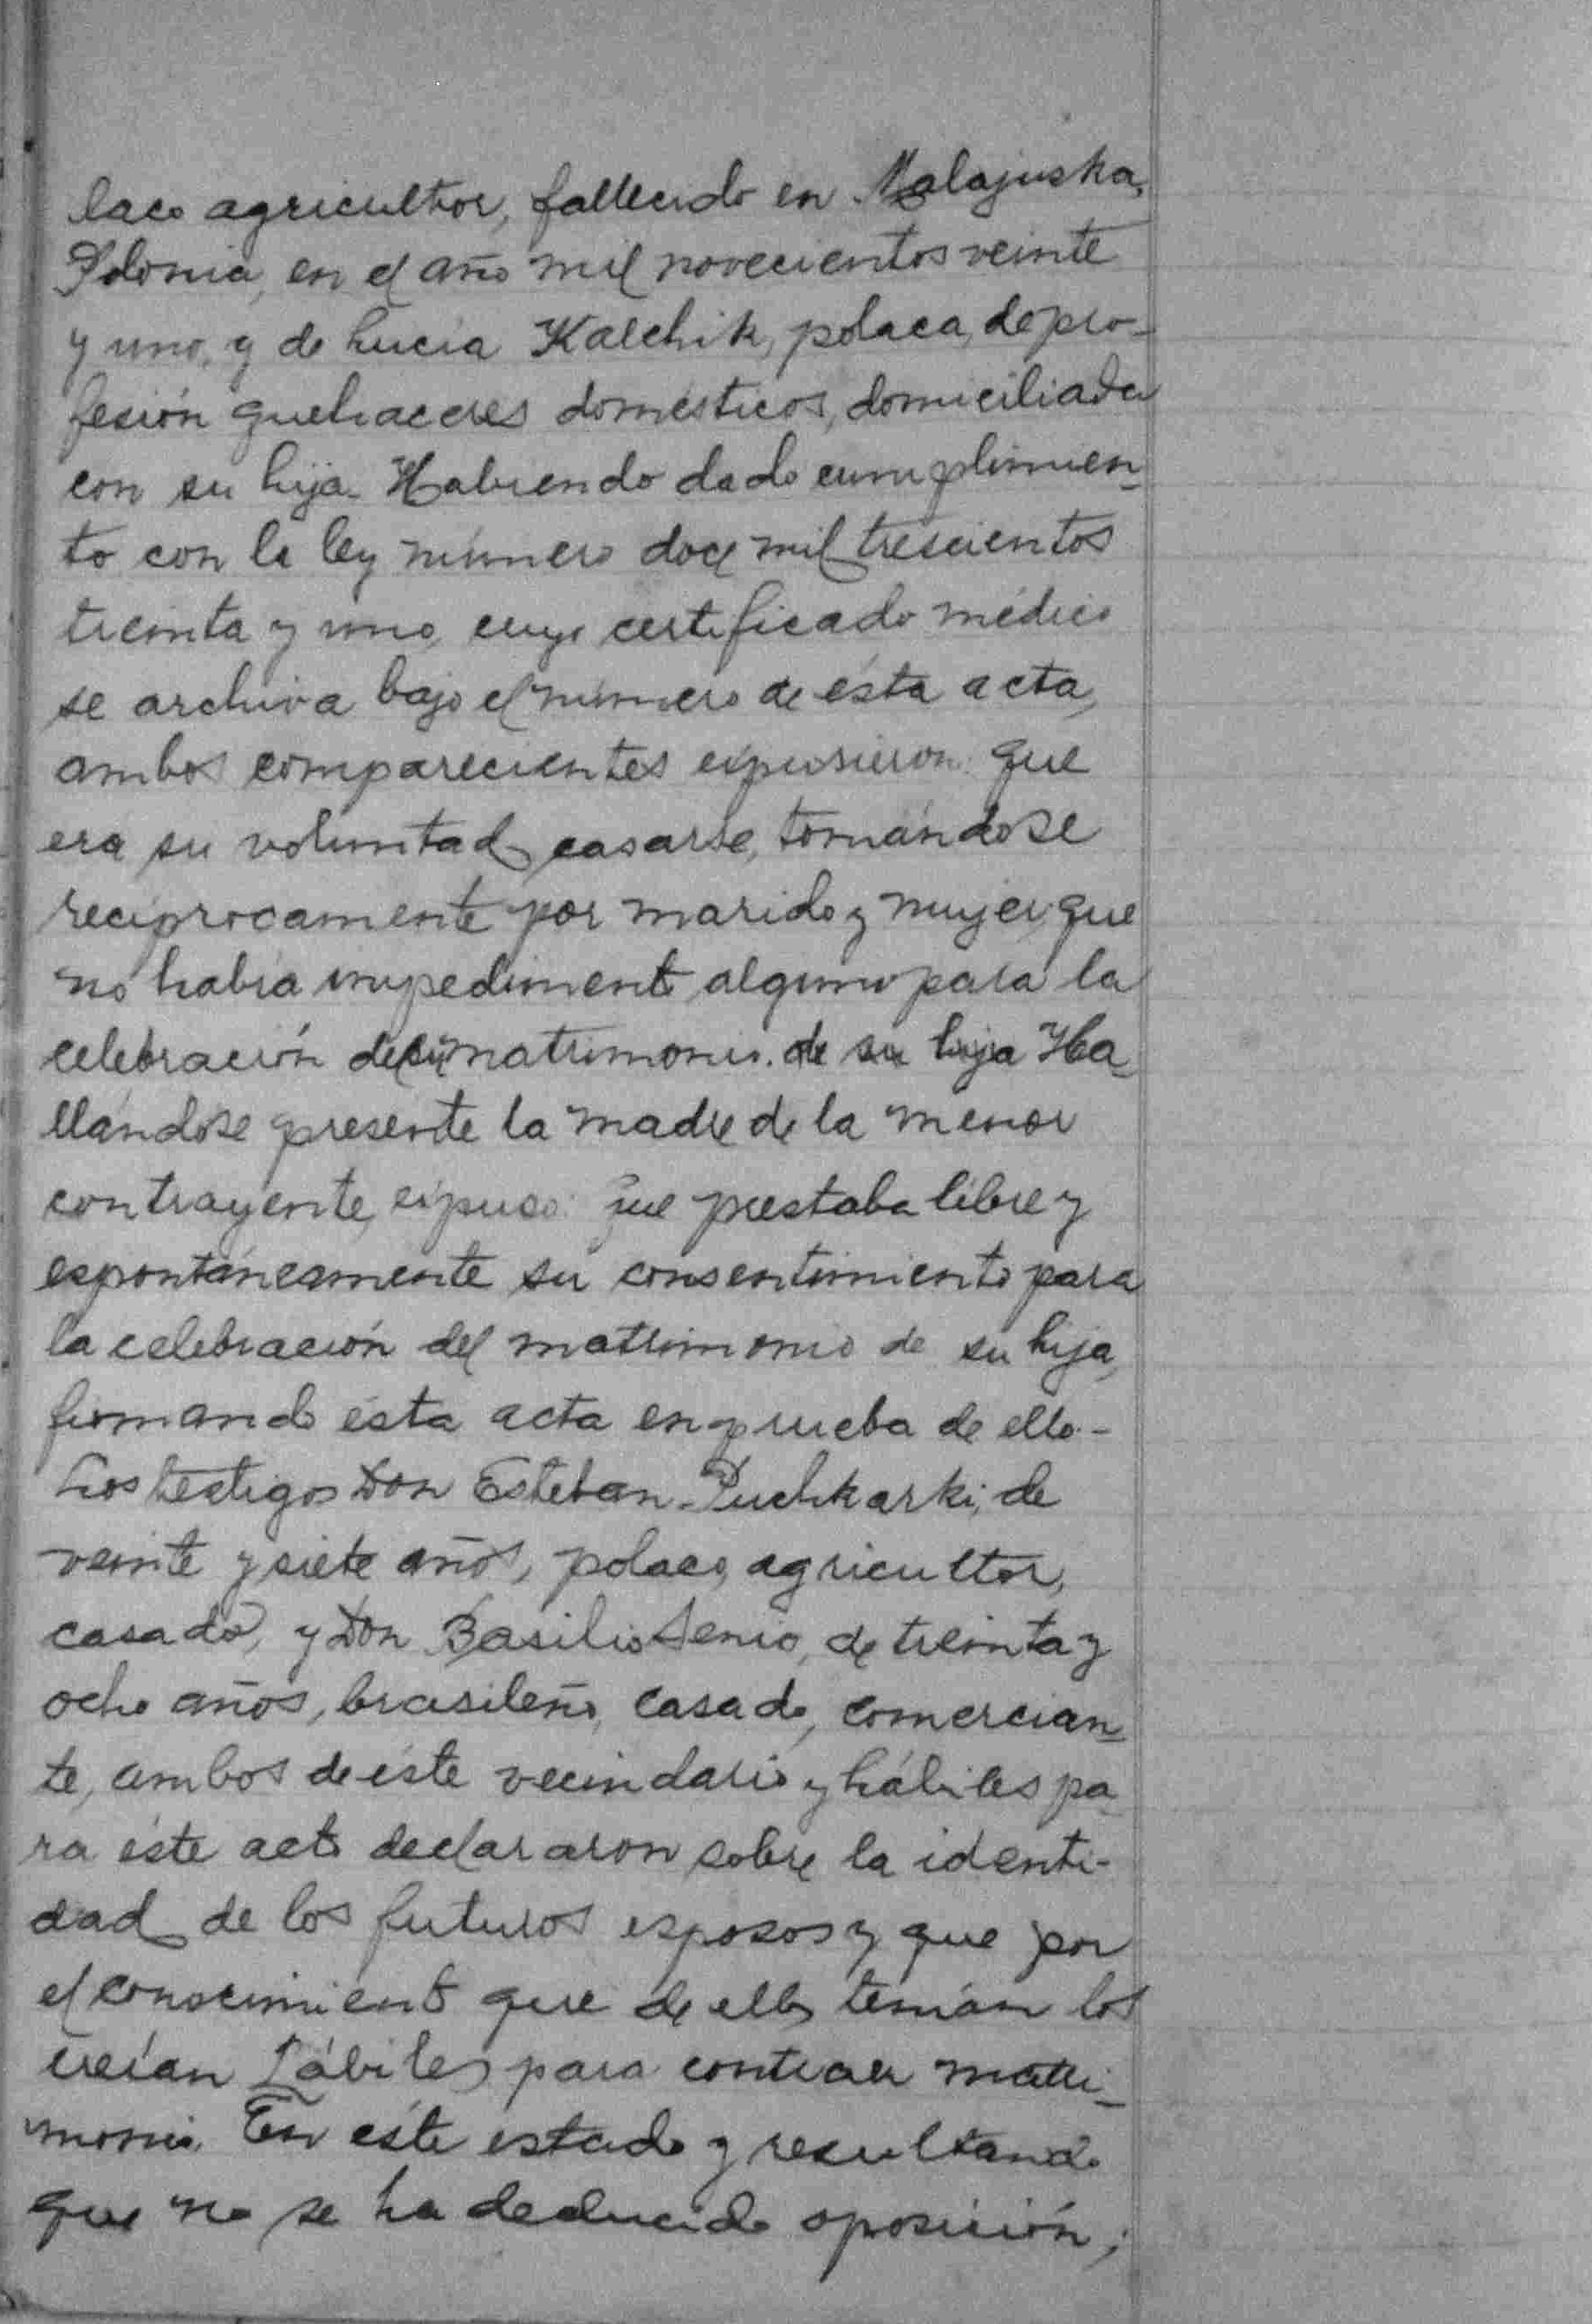 laco agricultor, fallecido en Malajuska,
Polonia, en el año mil novecientos veinte
y uno, y de Lucía Kalchik, polaca, de pro-
fesión quehaceres domésticos, domiciliada
con su hija. Habiendo dado cumplimien-
to con la ley número doce mil trescientos
treinta y uno, cuyo certificado médico
se archiva bajo el número de ésta acta,
ambos comparecientes expusieron: que
era su voluntad casarse, tomándose
recíprocamente por marido y mujer, que
no había impedimento alguno para la
celebración del matrimonio. de su hija Ha-
llándose presente la madre de la menor
contrayente, expuso: que prestaba libre y
espontáneamente su consentimiento para
la celebración del matrimonio de su hija,
firmando ésta acta en prueba de ello.-
Los testigos Don Esteban Puchkarki, de
veinte y siete años, polaco, agricultor,
casado, y Don Basilio Senio, de treinta y
ocho años, brasileño, casado, comercian-
te, ambos de éste vecindario y hábiles pa-
ra éste acto declararon sobre la identi-
dad de los futuros esposos y que por
el conocimiento que de ellos tenían los
creían hábiles para contraer matri-
monio. En éste estado y resultando
que no se ha deducido oposición,